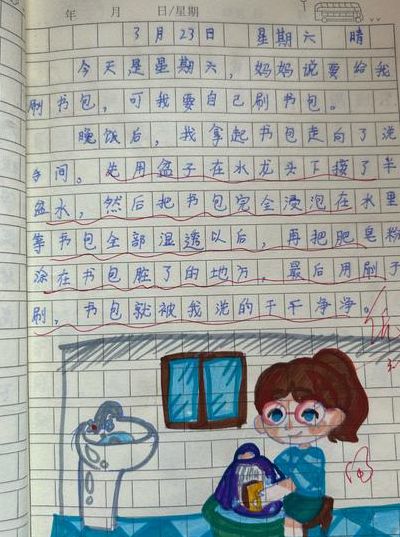 年 月 日/星期
3月23日 星期六 晴
今天是星期六，妈妈说要给我
刷书包，可我要自己刷书包。
晚饭后，我拿起书包走向了洗
手间。先用盆子在水龙头下接了半
盆水，然后把书包完全浸泡在水里
等书包全部湿透以后，再把肥皂粉
涂在书包脏了的地方，最后用刷子
刷，书包就被我洗的干干净净。